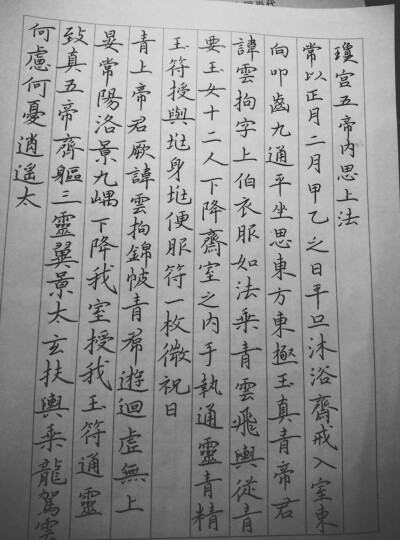 瓊宮五帝內思上法
常以正月二月甲乙之日平旦沐浴齋戒入室東
向叩齒九通平坐思東方東極玉真青帝君
諱雲拘字上伯衣服如法乘青雲飛輿從青
要玉女十二人下降齋室之內手執通靈青精
玉符授與兆身兆便服符一枚微祝曰
青上帝君厥諱雲拘錦帔青帬遊迴虛無上
晏常陽洛景九嵎下降我室授我玉符通靈
致真五帝齊軀三靈翼景太玄扶輿乘龍駕雲
何慮何憂逍遙太